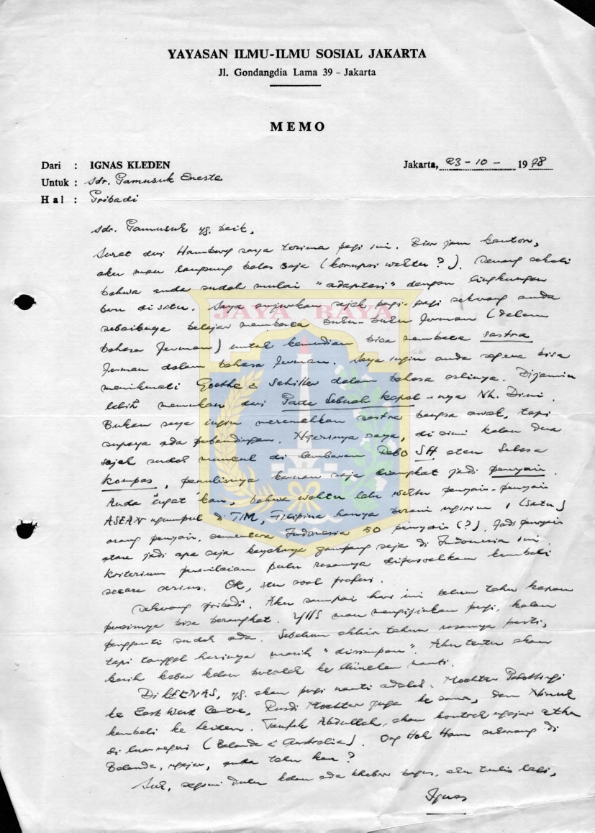 YAYASAN ILMU-ILMU SOSIAL JAKARTA
Jl. Gondangdia Lama 39 - Jakarta
MEMO
Dari : IGNAS KLEDEN
Jakarta, 23-10- 1978
Untuk : sdr. Pamusuk Eneste
Hal : Pribadi
sdr. Pamusuk yg baik,
Surat dari Hamburg saya terima pagi ini. Biar jam kantor,
aku mau langsung balas saja (korupsi waktu?). Senang sekali
bahwa anda sudah mulai "adaptasi" dengan lingkungan
baru di situ. Saya anjurkan sejak pagi-pagi sekarang anda
sebaiknya belajar membaca buku-buku Jerman (dalam
bahasa Jerman) untuk kemudian bisa membaca sastra
Jerman dalam bahasa Jerman. Saya ingin anda segera bisa
menikmati Goethe & Schiller dalam bahasa aslinya. Dijamin
lebih memukau dari Pada Sebuah Kapal-nya Nh. Dini.
Bukan saya ingin meremehkan sastra bangsa awak, tapi
supaya ada perbandingan. Ngerinya saya, di sini kalau dua
sajak sudah muncul di lembaran Rabo SH atau Selasa
Kompas, penulisnya kawan saja diangkat jadi penyair.
Anda ingat kan, bahwa waktu lalu waktu penyair-penyair
ASEAN ngumpul di TIM, Filipina hanya berani ngirim 1 (satu)
orang penyair, sementara Indonesia 50 penyair (?). Jadi penyair
atau jadi apa saja kayaknya gampang saja di Indonesia ini.
Kriterium penilaian perlu rasanya dipersoalkan kembali
secara serius. OK, itu soal profesi.
Sekarang pribadi. Aku sampai hari ini belum tahu kapan
pastinya bisa berangkat. YIIS mau mengijinkan pergi, kalau
pengganti sudah ada. Sebelum akhir tahun rasanya pasti,
tapi tanggal harinya masih "disimpan". Aku tentu akan
kasih kabar kalau mendarat ke München nanti.
Di LEKNAS, yg akan pergi nanti adalah Mochtar Pabottingi
ke East West Centre, Rusdi Mochtar juga ke sana, dan
kembali ke Leiden. Taufik Abdullah, akan kontrak ngajar
di luar negeri (Belanda & Australia). Ong Hok Ham sekarang di
Belanda, ngajar, anda tahu kan?
Sud, segini dulu kalau ada khabar bagus, aku tulis lagi,
Ignas
JAYA RAYA